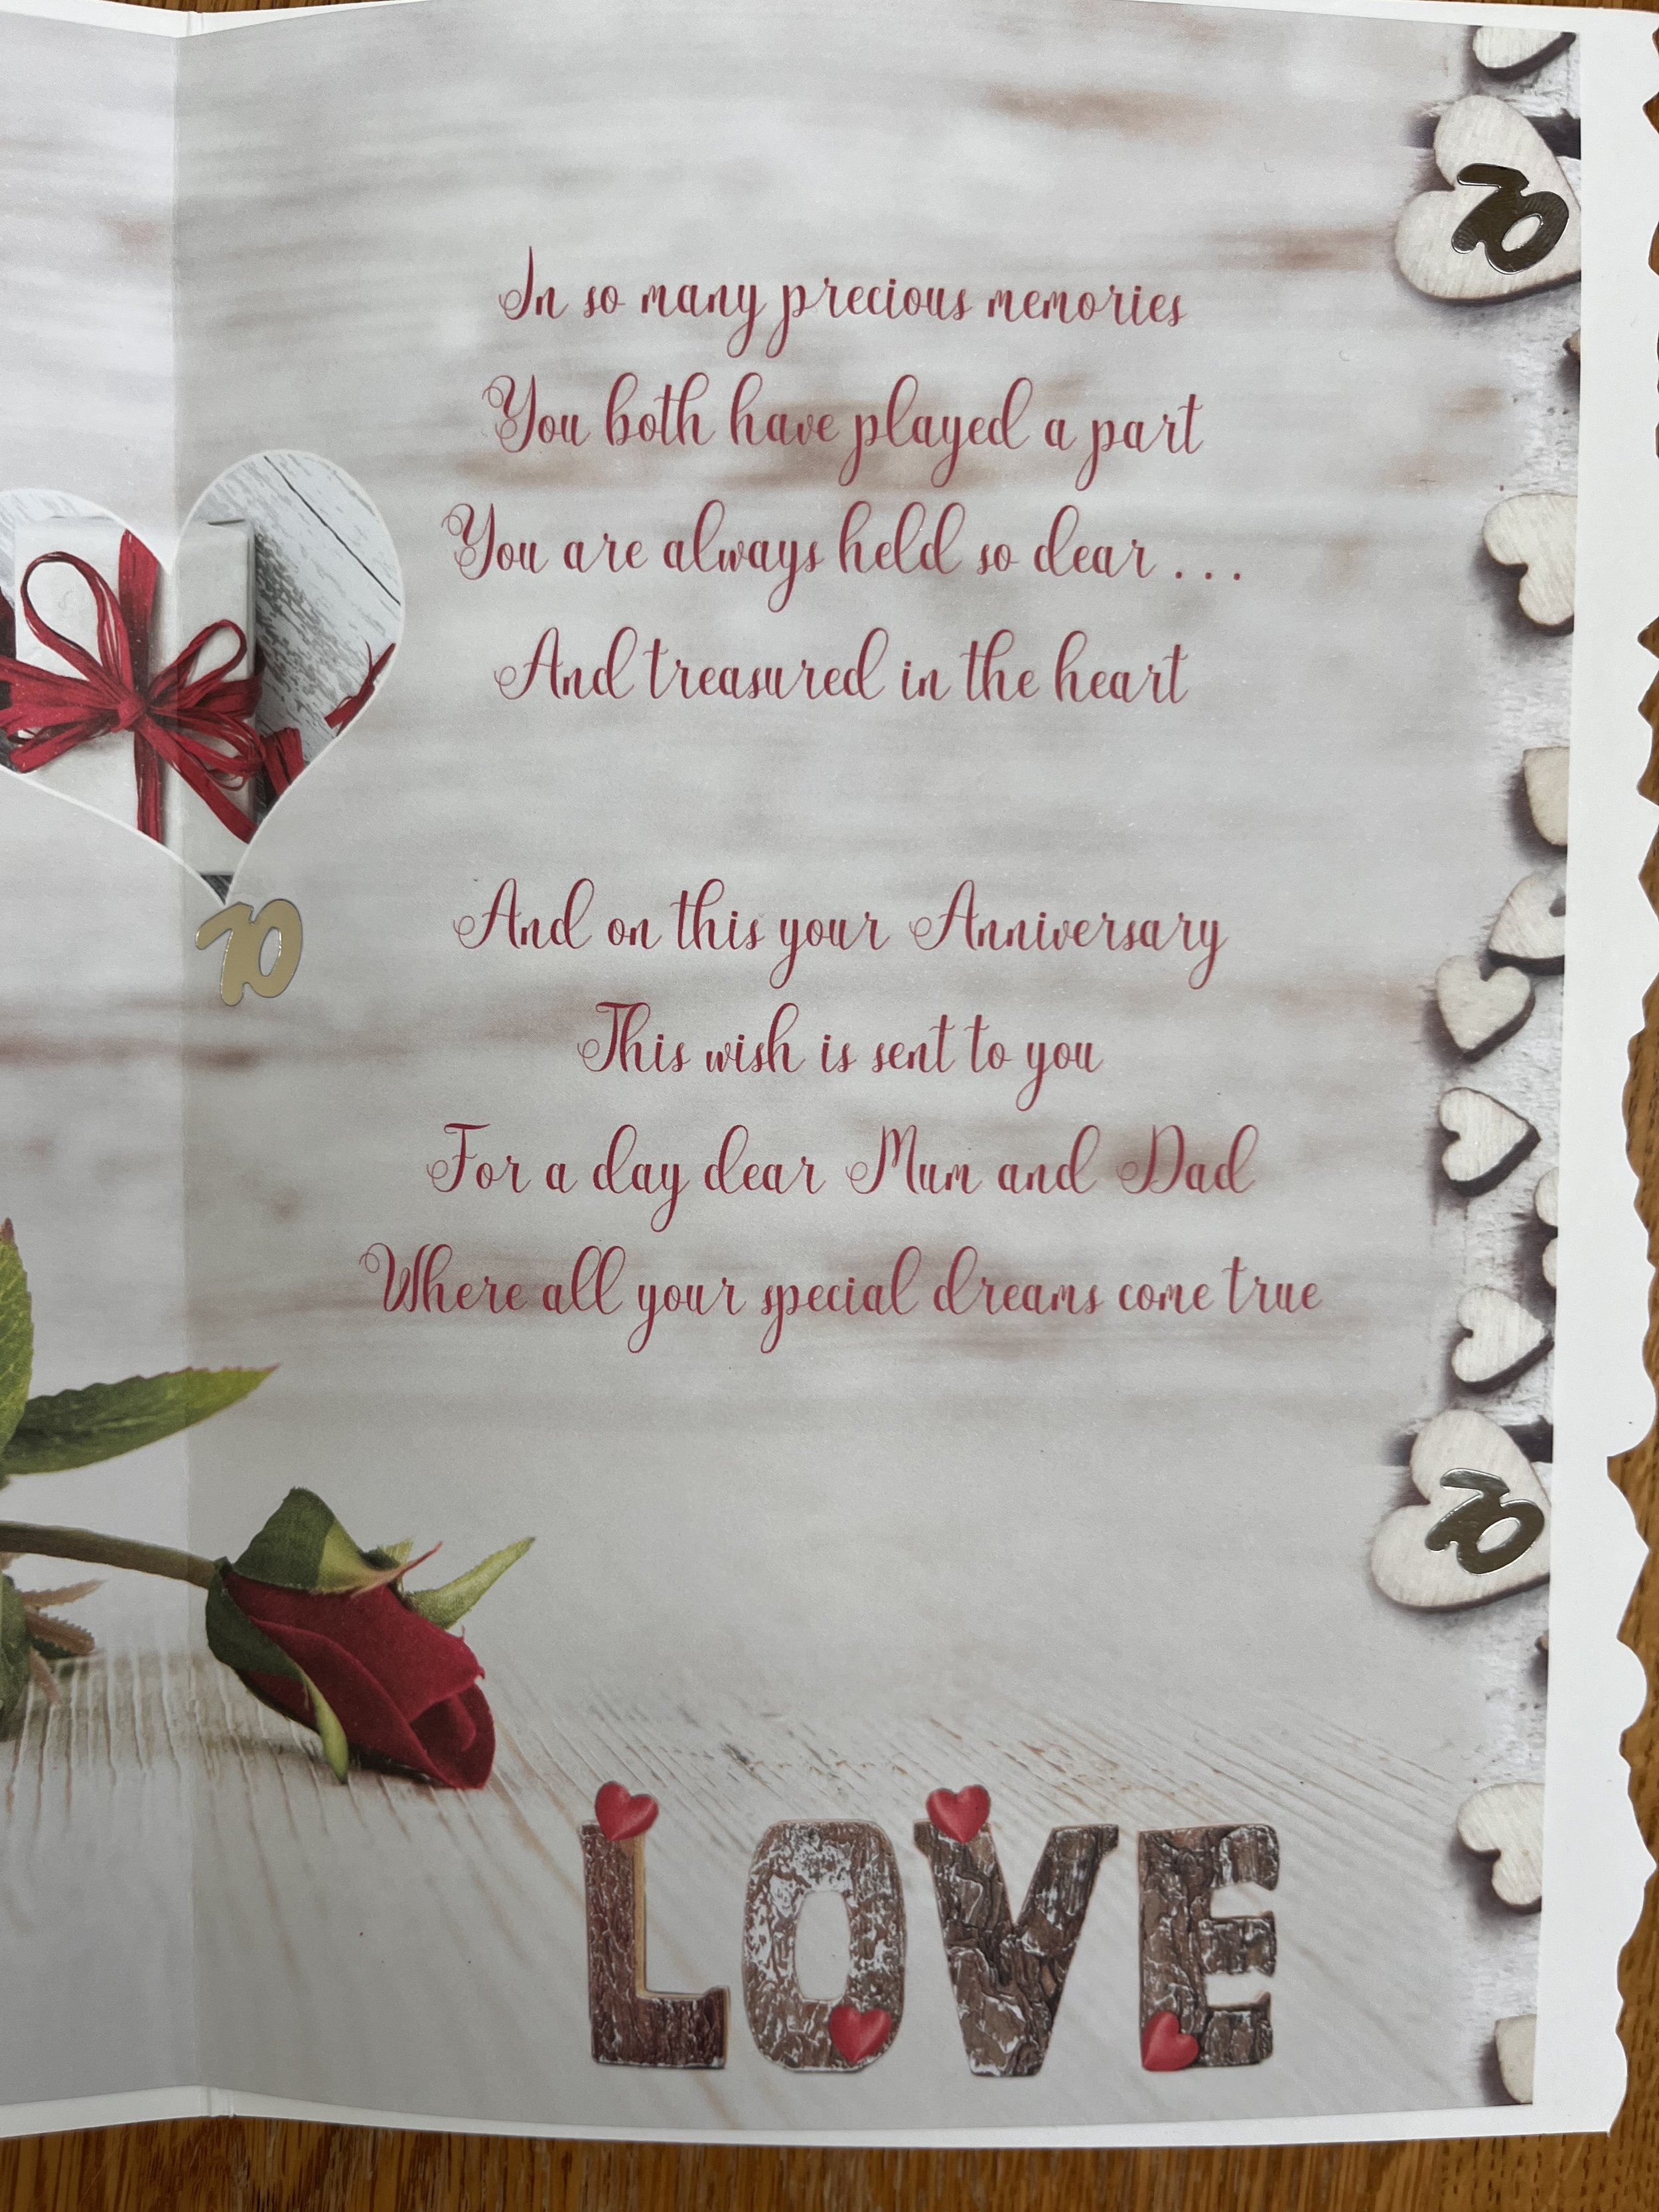 70
In so many precious memories
You both have played a part
You are always held so dear . . .
And treasured in the heart
70
And on this your Anniversary
This wish is sent to you
For a day dear Mum and Dad
Where all your special dreams come true
70
LOVE